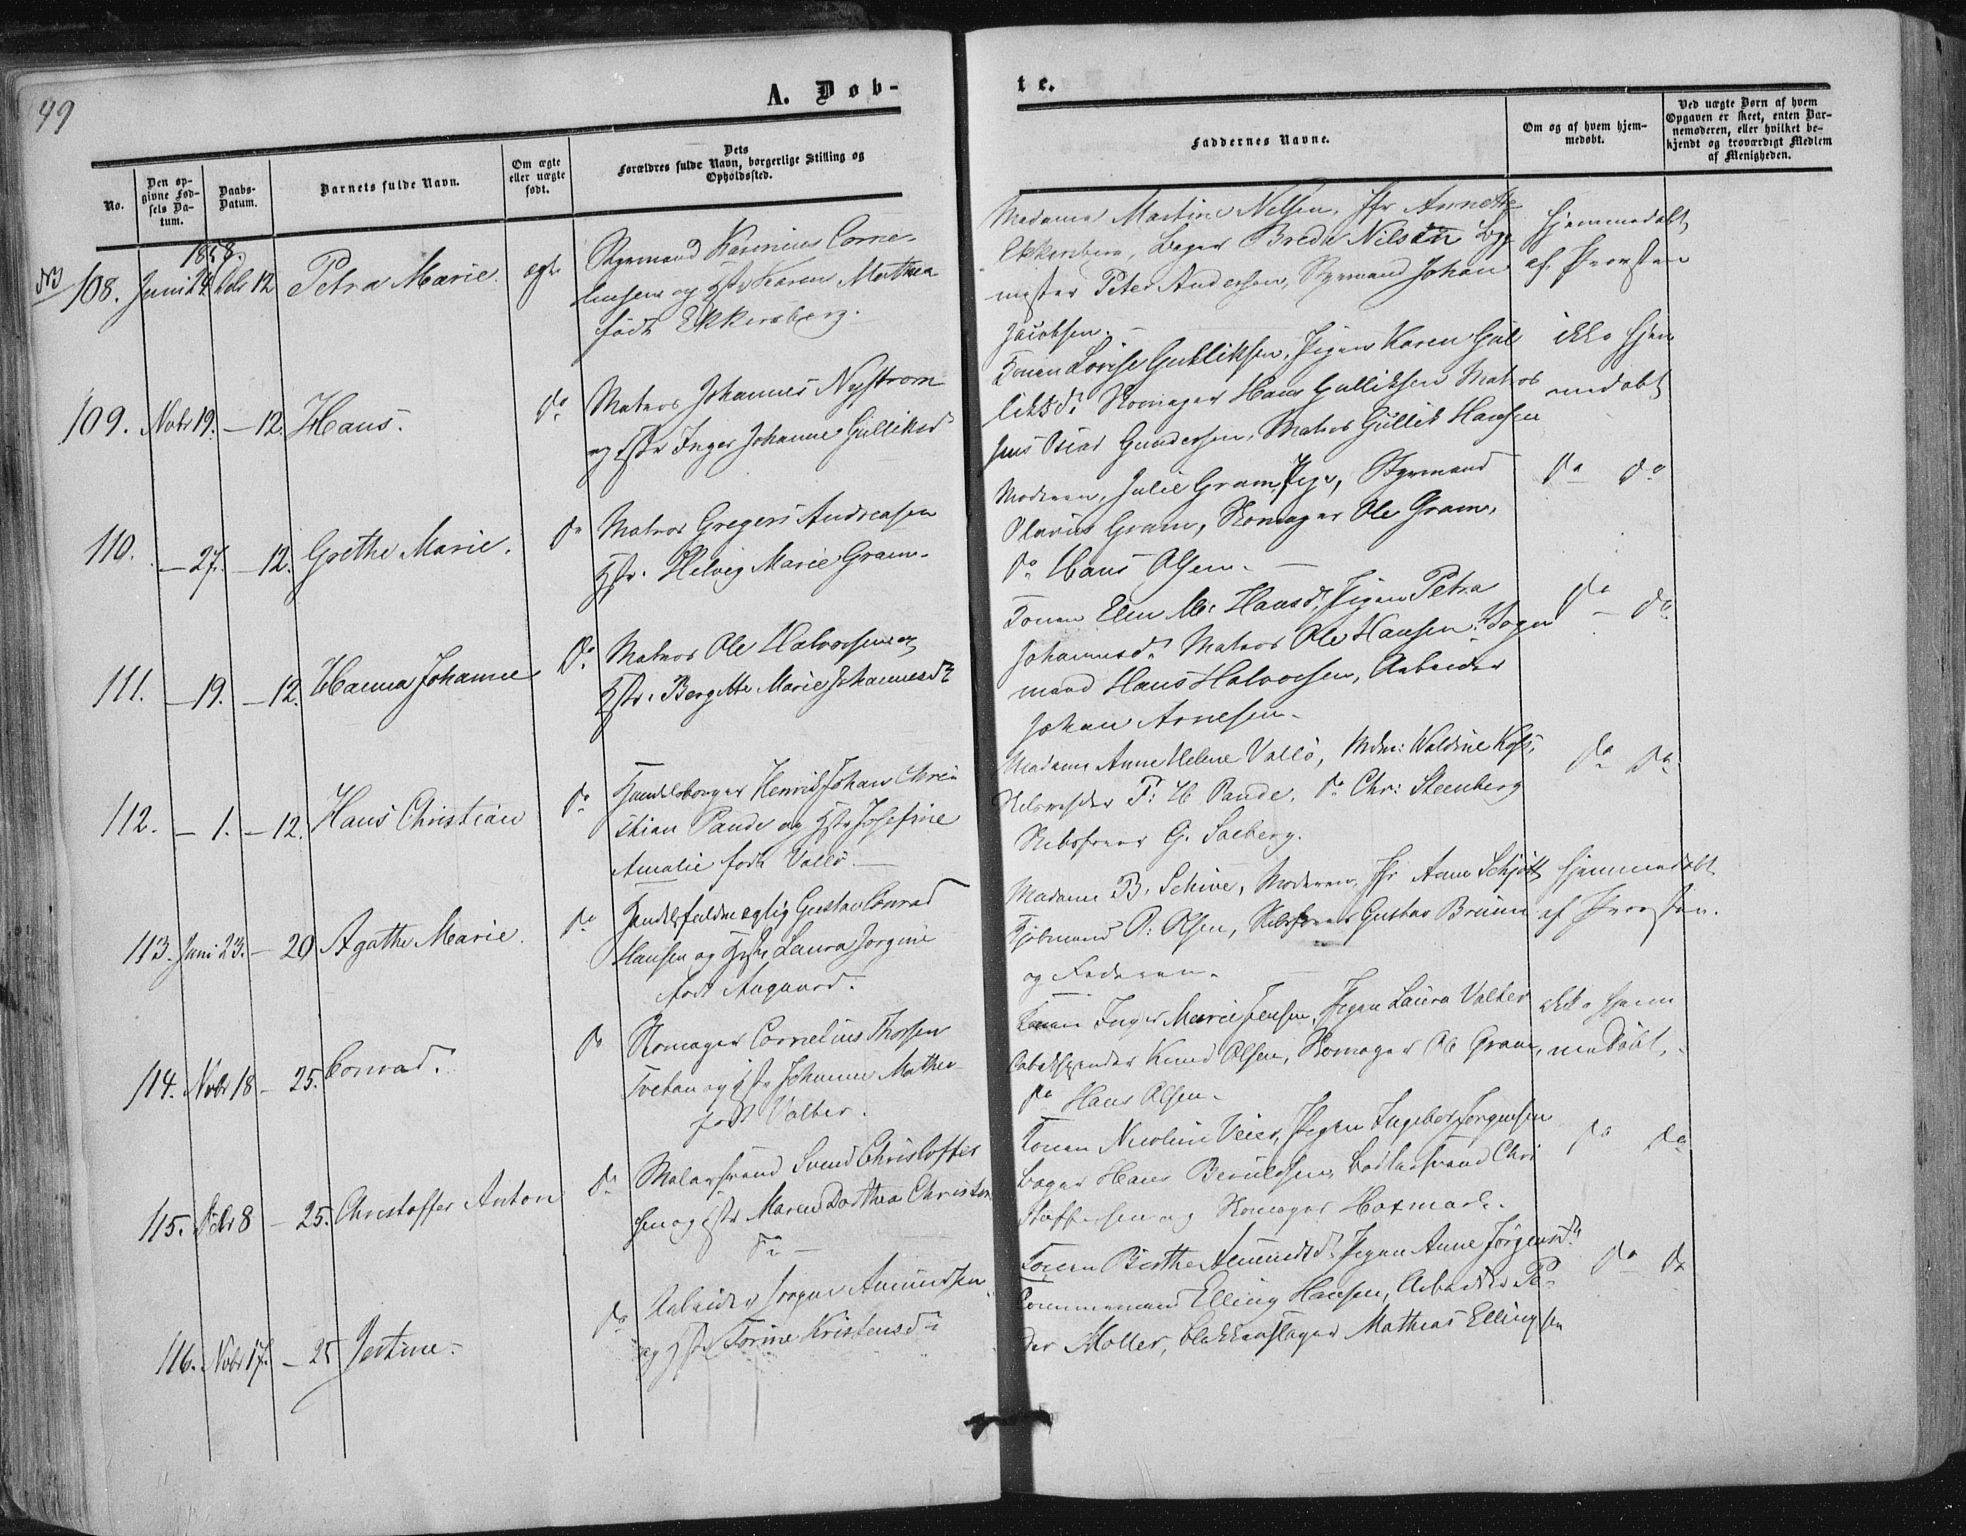 49
A. Døb-
te.
No.
Den op-
givne Fød-
sels Da-
tum.
Daabs-
Datum.
Barnets fulde Navn.
Om ægte
eller uægte
født.
Dets
Forældres fulde Navn, borgerlige Stilling og
Opholdssted.
Faddernes Navne.
Om og af hvem hjem-
medøbt.
Ved uægte Børn af hvem
Opgaven er skeet, enten Bar-
nemoderen, eller hvilket be-
kjendt og troværdigt Medlem
af Menigheden.
1858.
108. Juni 24 Dbr 12 Petra Marie. ægte
Styrmand Kasinius Corne-
liusen og Hstr Karen Mathea
født Ekkersberg.
Madame Martine Nilsen, Jfr Annette
Ekkersberg, Bager Breda Nilsen, Byg
mester Peter Andersen, Styrmand Johan
Jacobsen.
Hjemmedøbt
af Præsten
109. Novbr 19. – 12. Hans. do
Matros Johannes Nystrøm
og Hstr Inger Johanne Gulliksd
Konen Lovise Gulliksen, Pigen Karen Gul
liksd. Skomager Hans Gulliksen Matros
Jens Oscar Gundersen, Matros Gullik Hansen
ikke hjem
medøbt
110. – 27. – 12. Grethe Marie. do
Matros Gregers Andreasen
Hstr. Helvig Marie Gram.
Moderen, Julie Gram, Pige, Styrmand
Olavus Gram, Skomager Ole Gram,
do Hans Olsen. –
do do
111. – 19. – 12. Hanna Johanne do
Matros Ole Halvorsen og
Hstr. Bergitte Marie Johannesdr
Konen Elen M. Hansd. Pigen Petra
Johannesd. Matros Ole Hansen
mand Hans Halvorsen, Arbeider
Johan Arnesen.
do – do
112. – 1. – 12. Hans Christian do
Handelsborger Henrik Johan Chri
stian Pande og Hstr Josefine
Amalie født Vallø. –
Madame Anne Helene Vallø, Mdm: Waldine
Skibsreder P: H Pande, do Chr: Steenberg
G. Solberg.
do do
113. Juni 23. – 20 Agathe Marie. do
Handelsfuldmægtig Gustav Conrad
Hansen og Hstr Laura Jorgine
født Aagaard.
Madame B. Schive, Moderen, Jfr Anne Schjøtt
P. Olsen, Gustav Bruun
og Faderen.
Hjemmedøbt
af Præsten.
114. Novbr 18 – 25. Conrad. do
Skomager Cornelius Thorsen
Tvetan og Hstr Johanne Mathea
født Valter.
Konen Inger Marie Jensen, Pigen Laura Valter
Knud Olsen, Skomager Ole Gram,
do Hans Olsen.
ikke hjem
medøbt.
115. Octbr 8 – 25. Christoffer Anton do
Malersvend Svend Christoffer
sen og Hstr Maren Dorthea Christen
do –
Konen Nicoline Veier, Pigen Ingebor Jørgensen
Bager Hans Berulfsen, Chri
stoffersen og Skomager Hoxmark.
do do
116. Novbr 17. – 25 Jostine. do
Arbeider Jørgen Amundsen
og Hstr Torine Kristensdr
Konen Birthe Amundsd. Pigen Anne Jørgensd.
Tømmermand Elling Hansen, Arbeider Pe
der Moller, Blokkemager Mathias Ellingsen
do do